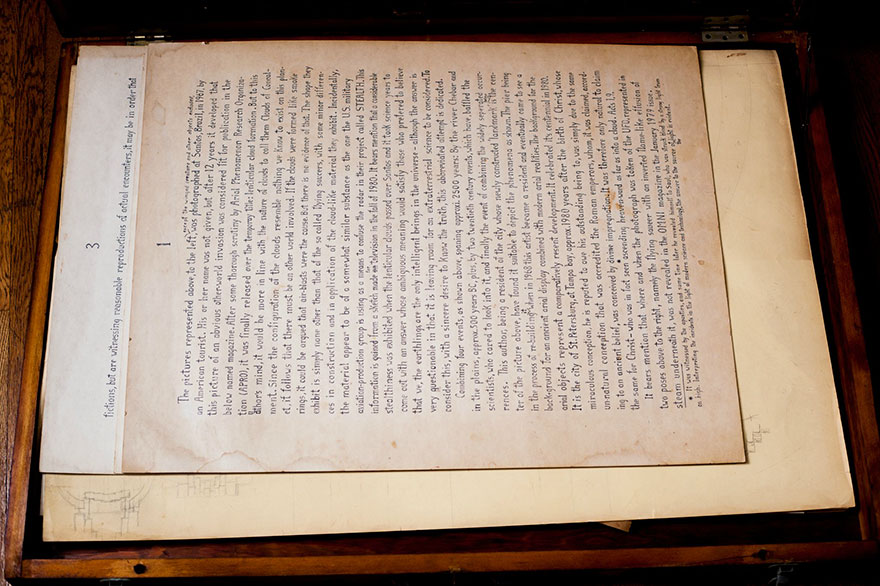 3
fictions, but are witnessing reasonable reproductions of actual encounters, it may be in order that
1
The pictures represented above, to the left, was photographed at Santos, Brazil, in by
an American tourist. His or her name was not given, but after 12 years it developed that
this picture of an obvious otherworld invasion was considered fit for publication in the
below named magazine. After some thorough scrutiny by Arial Phenomenon Research Organiza-
tion (APRO), it was finally released over the temporary title: lenticular cloud formation. But to this
athors mind, it would be more in line with the nature of clouds to call them Clouds of Conceal-
ment. Since the configuration of the clouds resemble nothing we know to exist on this plan-
et, it follows that there must be an other world involved. If the clouds were formed like smoke
rings, it could be argued that air-blasts were the cause. But there is no evidence of that. The shape they
exhibit is simply none other than that of the so called flying sauers, with some minor differen-
ces in construction and in application of the cloudlike material they exhibit. Incidentally,
the material appear to be of a somewhat similar substance as the one the U.S. military
aviation-production group is using as a means to confuse the radar in their project called STEALTH. This
information is gained from a sketch made on television in the fall of 1980. It bears mention that a considerable
stealthiness was exhibited when the lenticular clouds passed over Santos and it took science years to
come out with an answer whose ambiguous meaning would satisfy those who preferred to believe
that we, the earthlings, are the only intelligent beings in the universe - although the answer is
very questionable in that it is leaving room for an extraterrestrial science to be considered. To
consider this, with a sincere desire to know the truth, this abbreviated attempt is dedicated.
Combining four events, as shown above, spanning approx. 2500 years: By the river Chebar and
in the plains, approx. 500 years BC, plus, by two twentieth century events, which have baffled the
scientists, who cared to look into it, and finally the event of combining the widely separated occur-
rences. This author, being a resident of the city whose newly constructed landmark is the cen-
ter of the picture above, have found it suitable to depict the phenomena as shown. The pier being
in the process of re-building when in 1968 this artist became a resident and eventually came to see a
background for an ancient arial display combined with modern arial realities. The background for the
arial objects represent a comparatively recent development. It celebrated its centennial in 1980.
It is the city of St. Petersburg, at Tampa bay, approx. 1980 years after the birth of Christ, whose
miraculous conception, he is reputed to owe his outstanding being to, was simply due to the same
un-natural conception that was accredited the Roman emperors, whom, it was claimed, accord-
ing to an ancient belief, was conceived by divine impregnation. It was therefore only natural to claim
the same for Christ - who was in fact seen ascending heavenward as far as into a cloud. Acts 1,9.
It bears mention that where and when the photograph was taken of the UFO, represented in
two poses above to the right, namely the flying saucer with an inverted flame-like effusion of
steam underneath it, was not revealed in the OMNI magazine in the January 1979 issue.